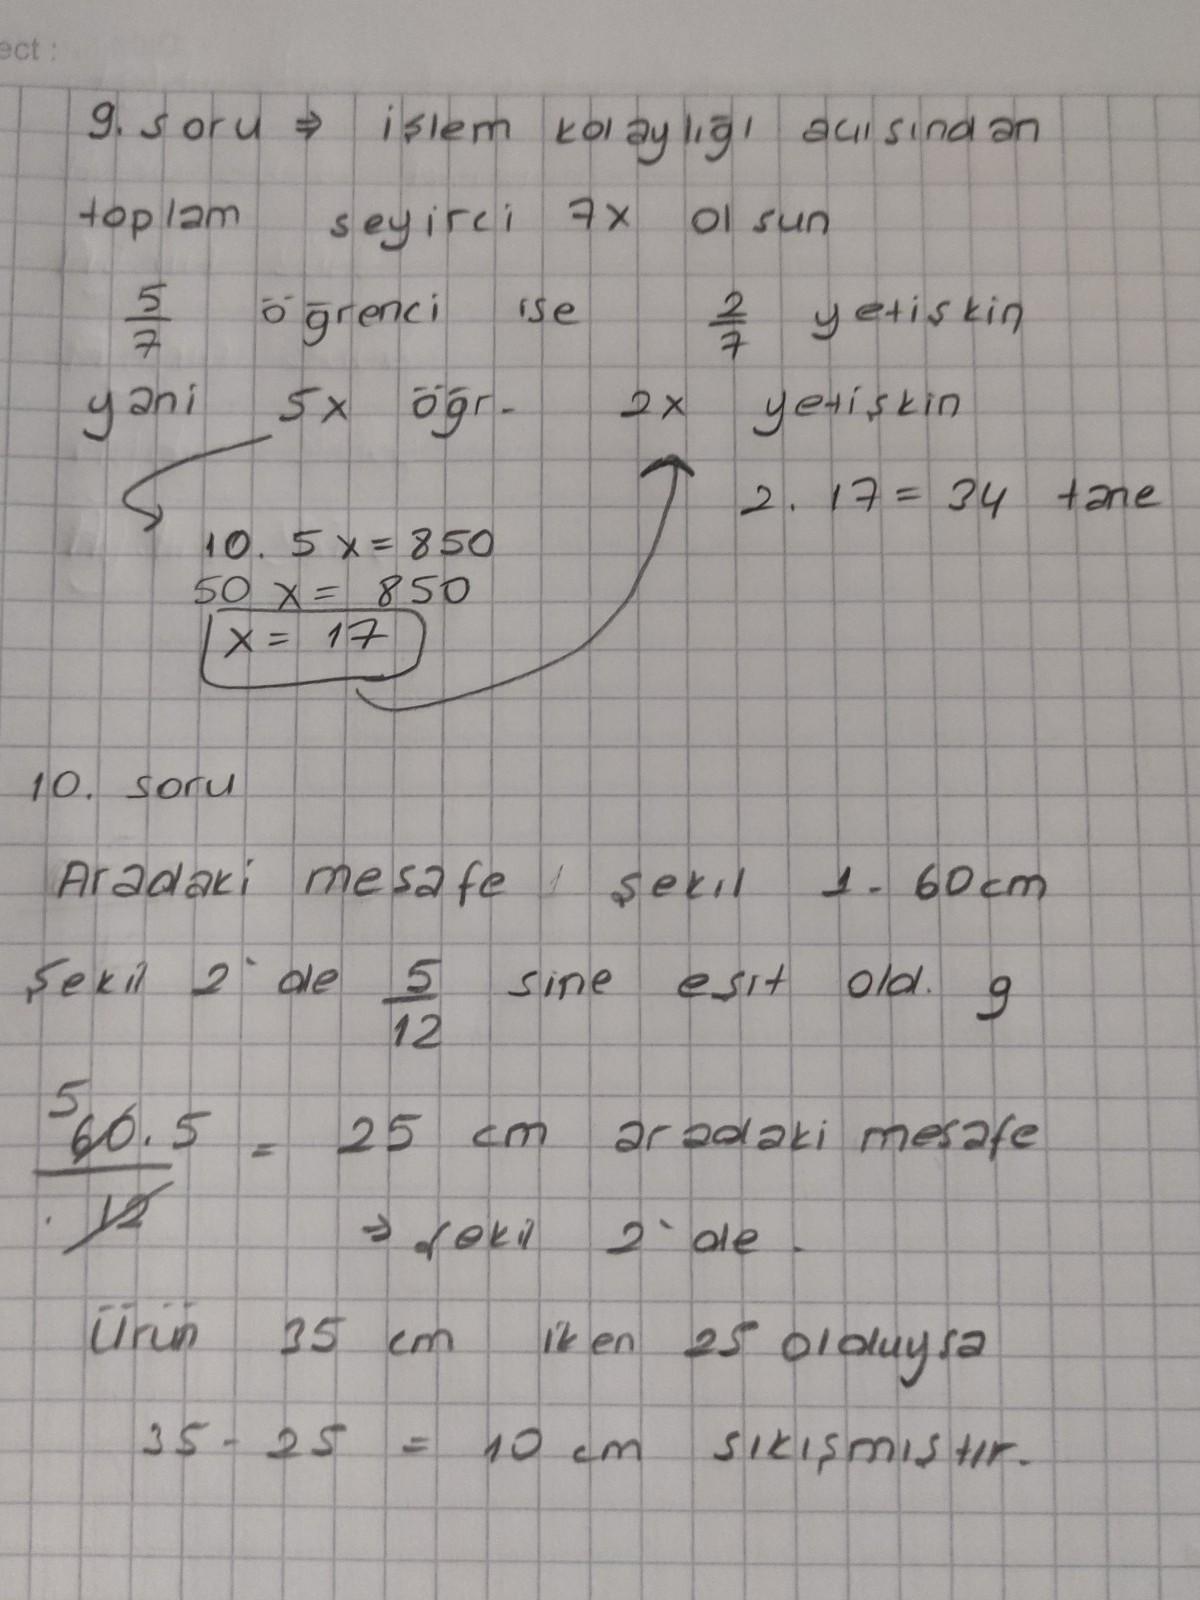 ect :
9. soru ⇒ işlem kolaylığı açısından
toplam seyirci 7x olsun
5/7 öğrenci ise 2/7 yetişkin
yani 5x öğr. 2x yetişkin
2. 17 = 34 tane
10. 5x = 850
50 x = 850
x = 17
10. soru
Aradaki mesafe şekil 1- 60cm
Şekil 2' de 5/12 sine eşit old. g
5 60.5/12 = 25 cm aradaki mesafe
⇒ şekil 2' de.
Ürün 35 cm iken 25 olduysa
35 - 25 = 10 cm sıkışmıştır.